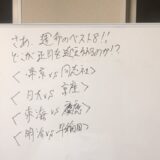 さあ、運命のベスト8!!
どこが正月を迎えるのか!?
<東京vs同志社>
<日大vs京産>
<東海vs慶應>
<明治vs早稲田>